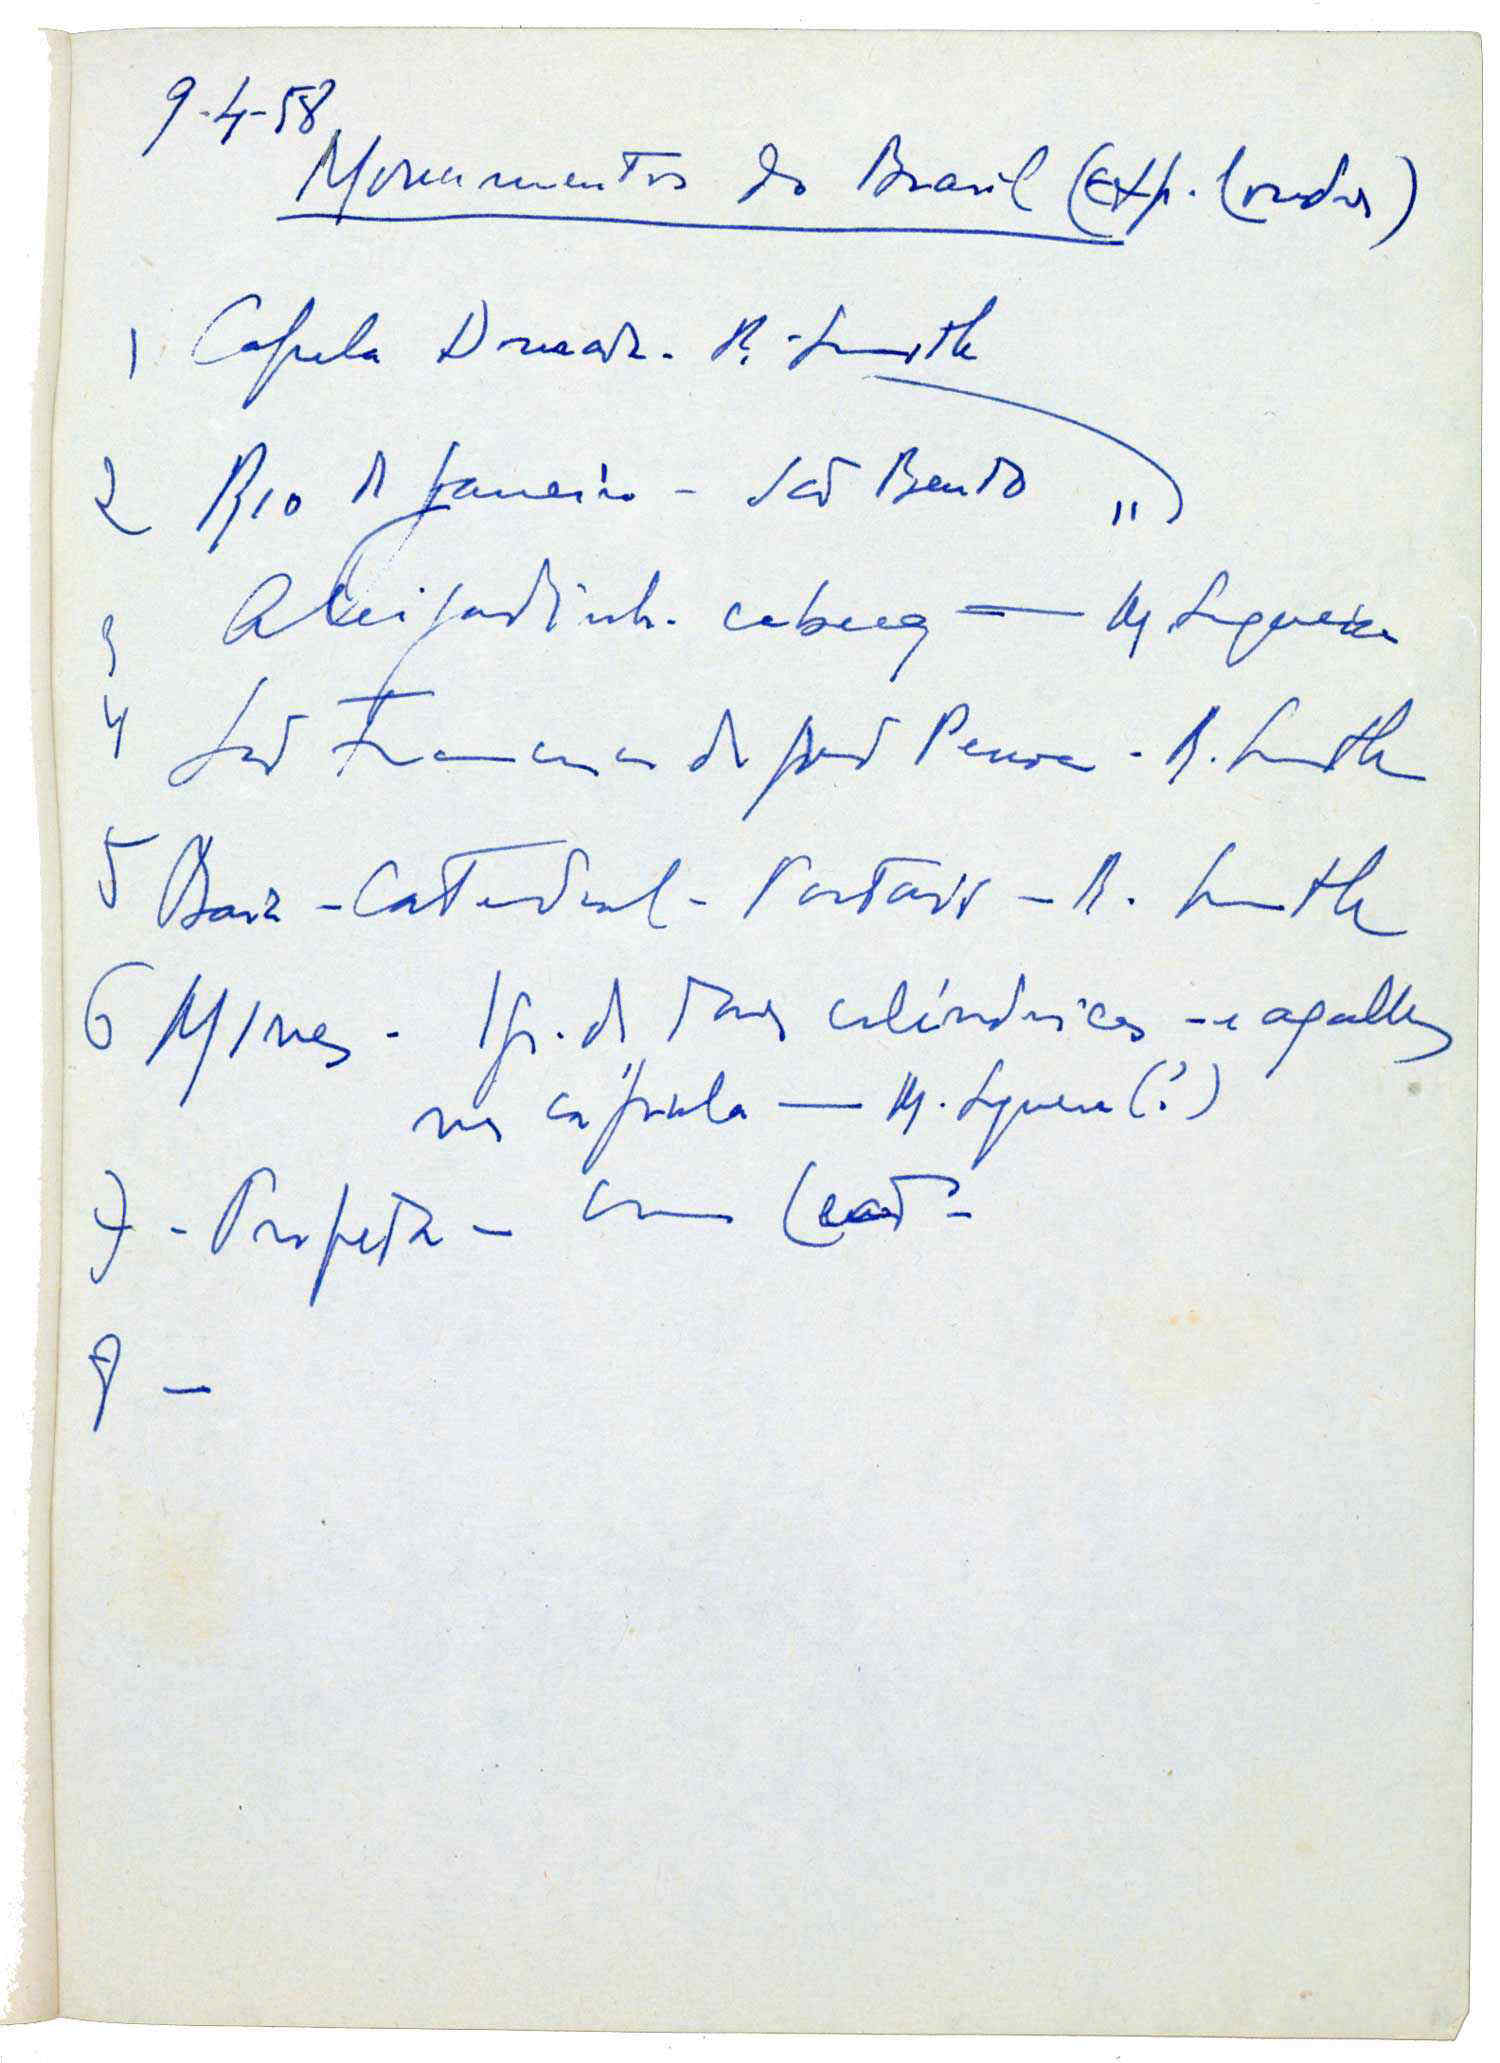 9-4-58
Monumentos do Brasil (Exp. Londres)
1 Capela Dourada - R. Smith
2 Rio de Janeiro - São Bento "
3 Aleijadinho - cabeça — M. Figueira
4 São Francisco de João Pessoa - R. Smith
5 Baía - Catedral - Portais - R. Smith
6 Minas - Igr. de torres cilíndricas - e agulhas
na cúpula — M. (?)
7 - Profeta - (
8 -